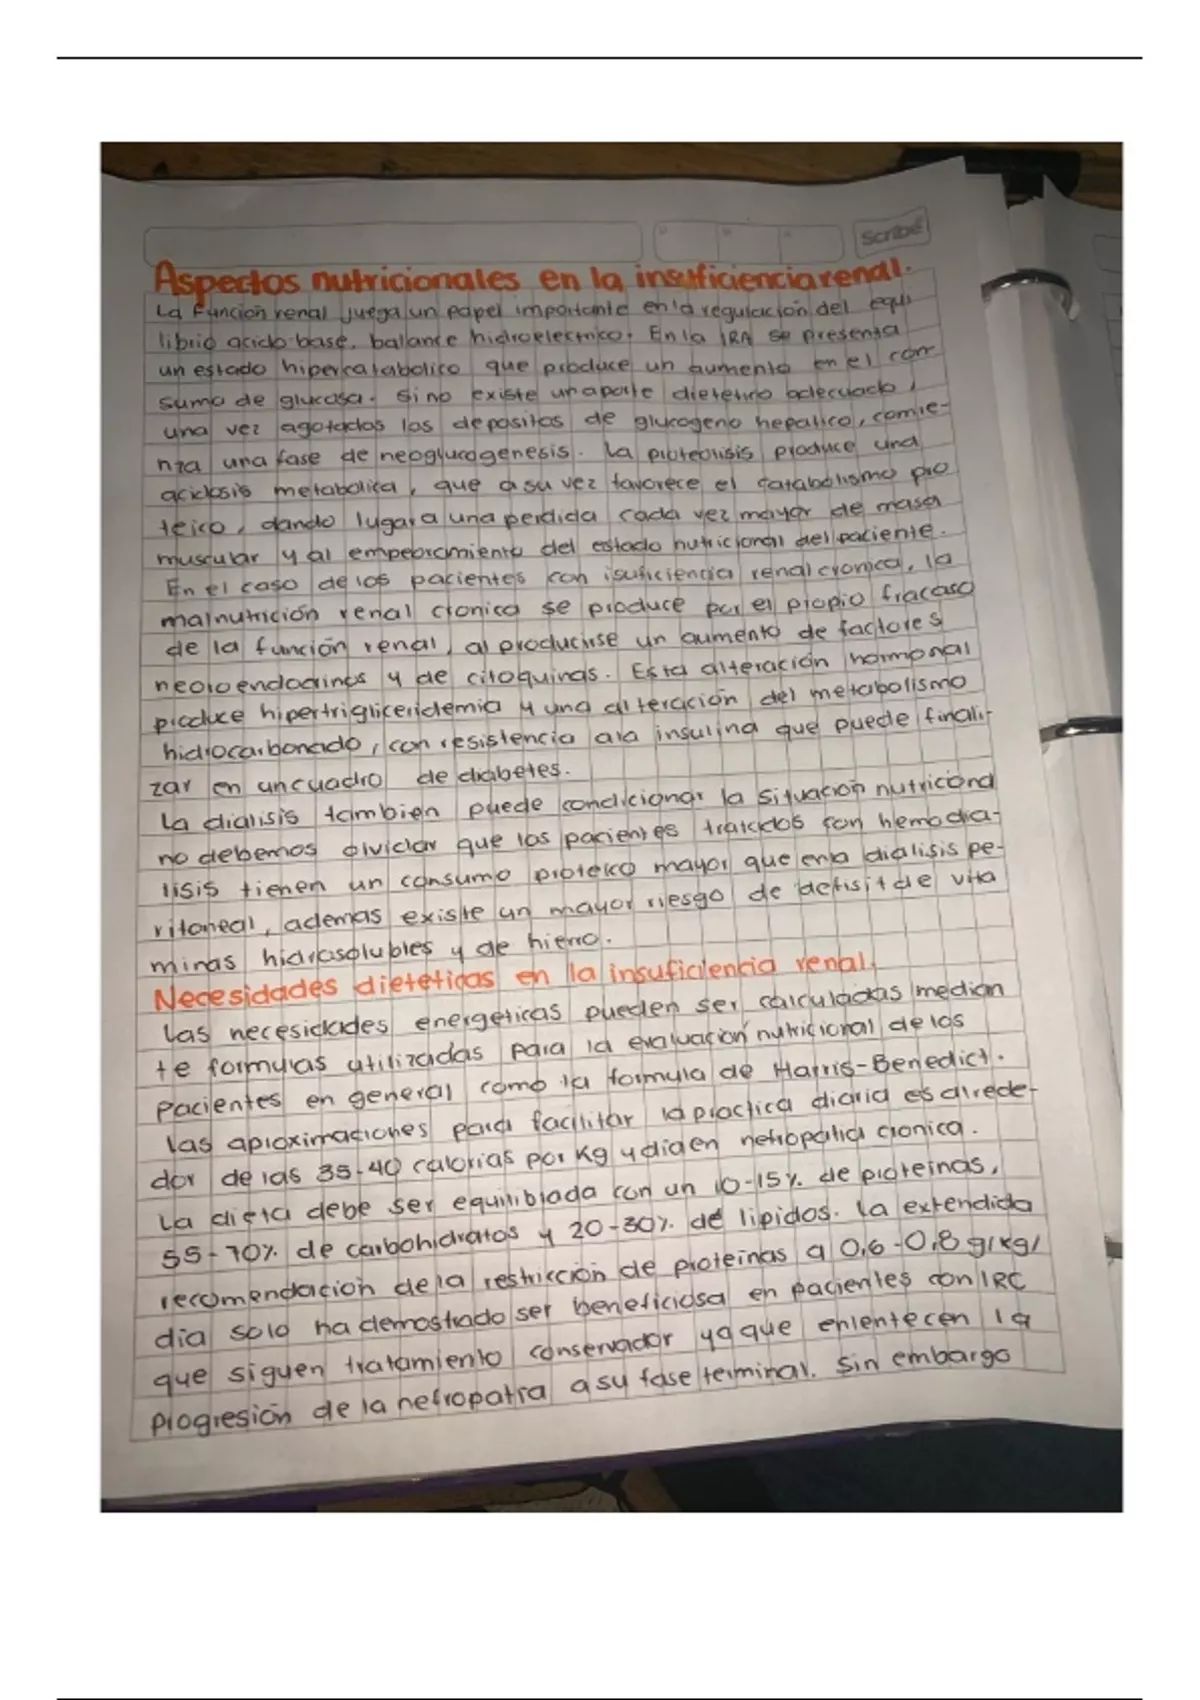 Scribe
Aspectos nutricionales en la insuficiencia renal.
La función renal juega un papel importante en la regulación del equi
librio acido-base, balance hidroelectrico. En la IRA se presenta
un estado hipercatabolico que produce un aumento en el con
sumo de glucosa. Si no existe un aporte dietetico adecuado,
una vez agotados los depositos de glucogeno hepatico, comie-
nza una fase de neoglucogenesis. La proteolisis produce una
acidosis metabolica, que a su vez favorece el catabolismo pro
teico, dando lugar a una perdida cada vez mayor de masa
muscular y al empeoramiento del estado nutricional del paciente.
En el caso de los pacientes con isuficiencia renal cronica, la
malnutrición renal cronica se produce por el propio fracaso
de la función renal, al producirse un aumento de factores
neoroendocrinos y de citoquinas. Esta alteración hormonal
produce hipertrigliceridemia y una alteración del metabolismo
hidrocarbonado, con resistencia a la insulina que puede finali-
zar en un cuadro de diabetes.
La dialisis tambien puede condicionar la situación nutricional
no debemos olvidar que los pacientes tratados con hemodia-
lisis tienen un consumo proteico mayor que en la dialisis pe-
ritoneal, ademas existe un mayor riesgo de defisit de vita
minas hidrosolubles y de hierro.
Necesidades dieteticas en la insuficiencia renal.
Las necesidades energeticas pueden ser calculadas median
te formulas utilizadas para la evaluación nutricional de los
Pacientes en general como la formula de Harris-Benedict.
Las aproximaciones para facilitar la practica diaria es alrede-
dor de las 35-40 calorias por Kg y dia en nefropatia cronica.
La dieta debe ser equilibrada con un 10-15% de proteinas,
55-70% de carbohidratos y 20-30% de lipidos. La extendida
recomendacion de la restricción de proteinas a 0,6-0,8 g/kg/
dia solo ha demostrado ser beneficiosa en pacientes con IRC
que siguen tratamiento conservador ya que enlentecen la
Progresión de la nefropatia a su fase terminal. Sin embargo